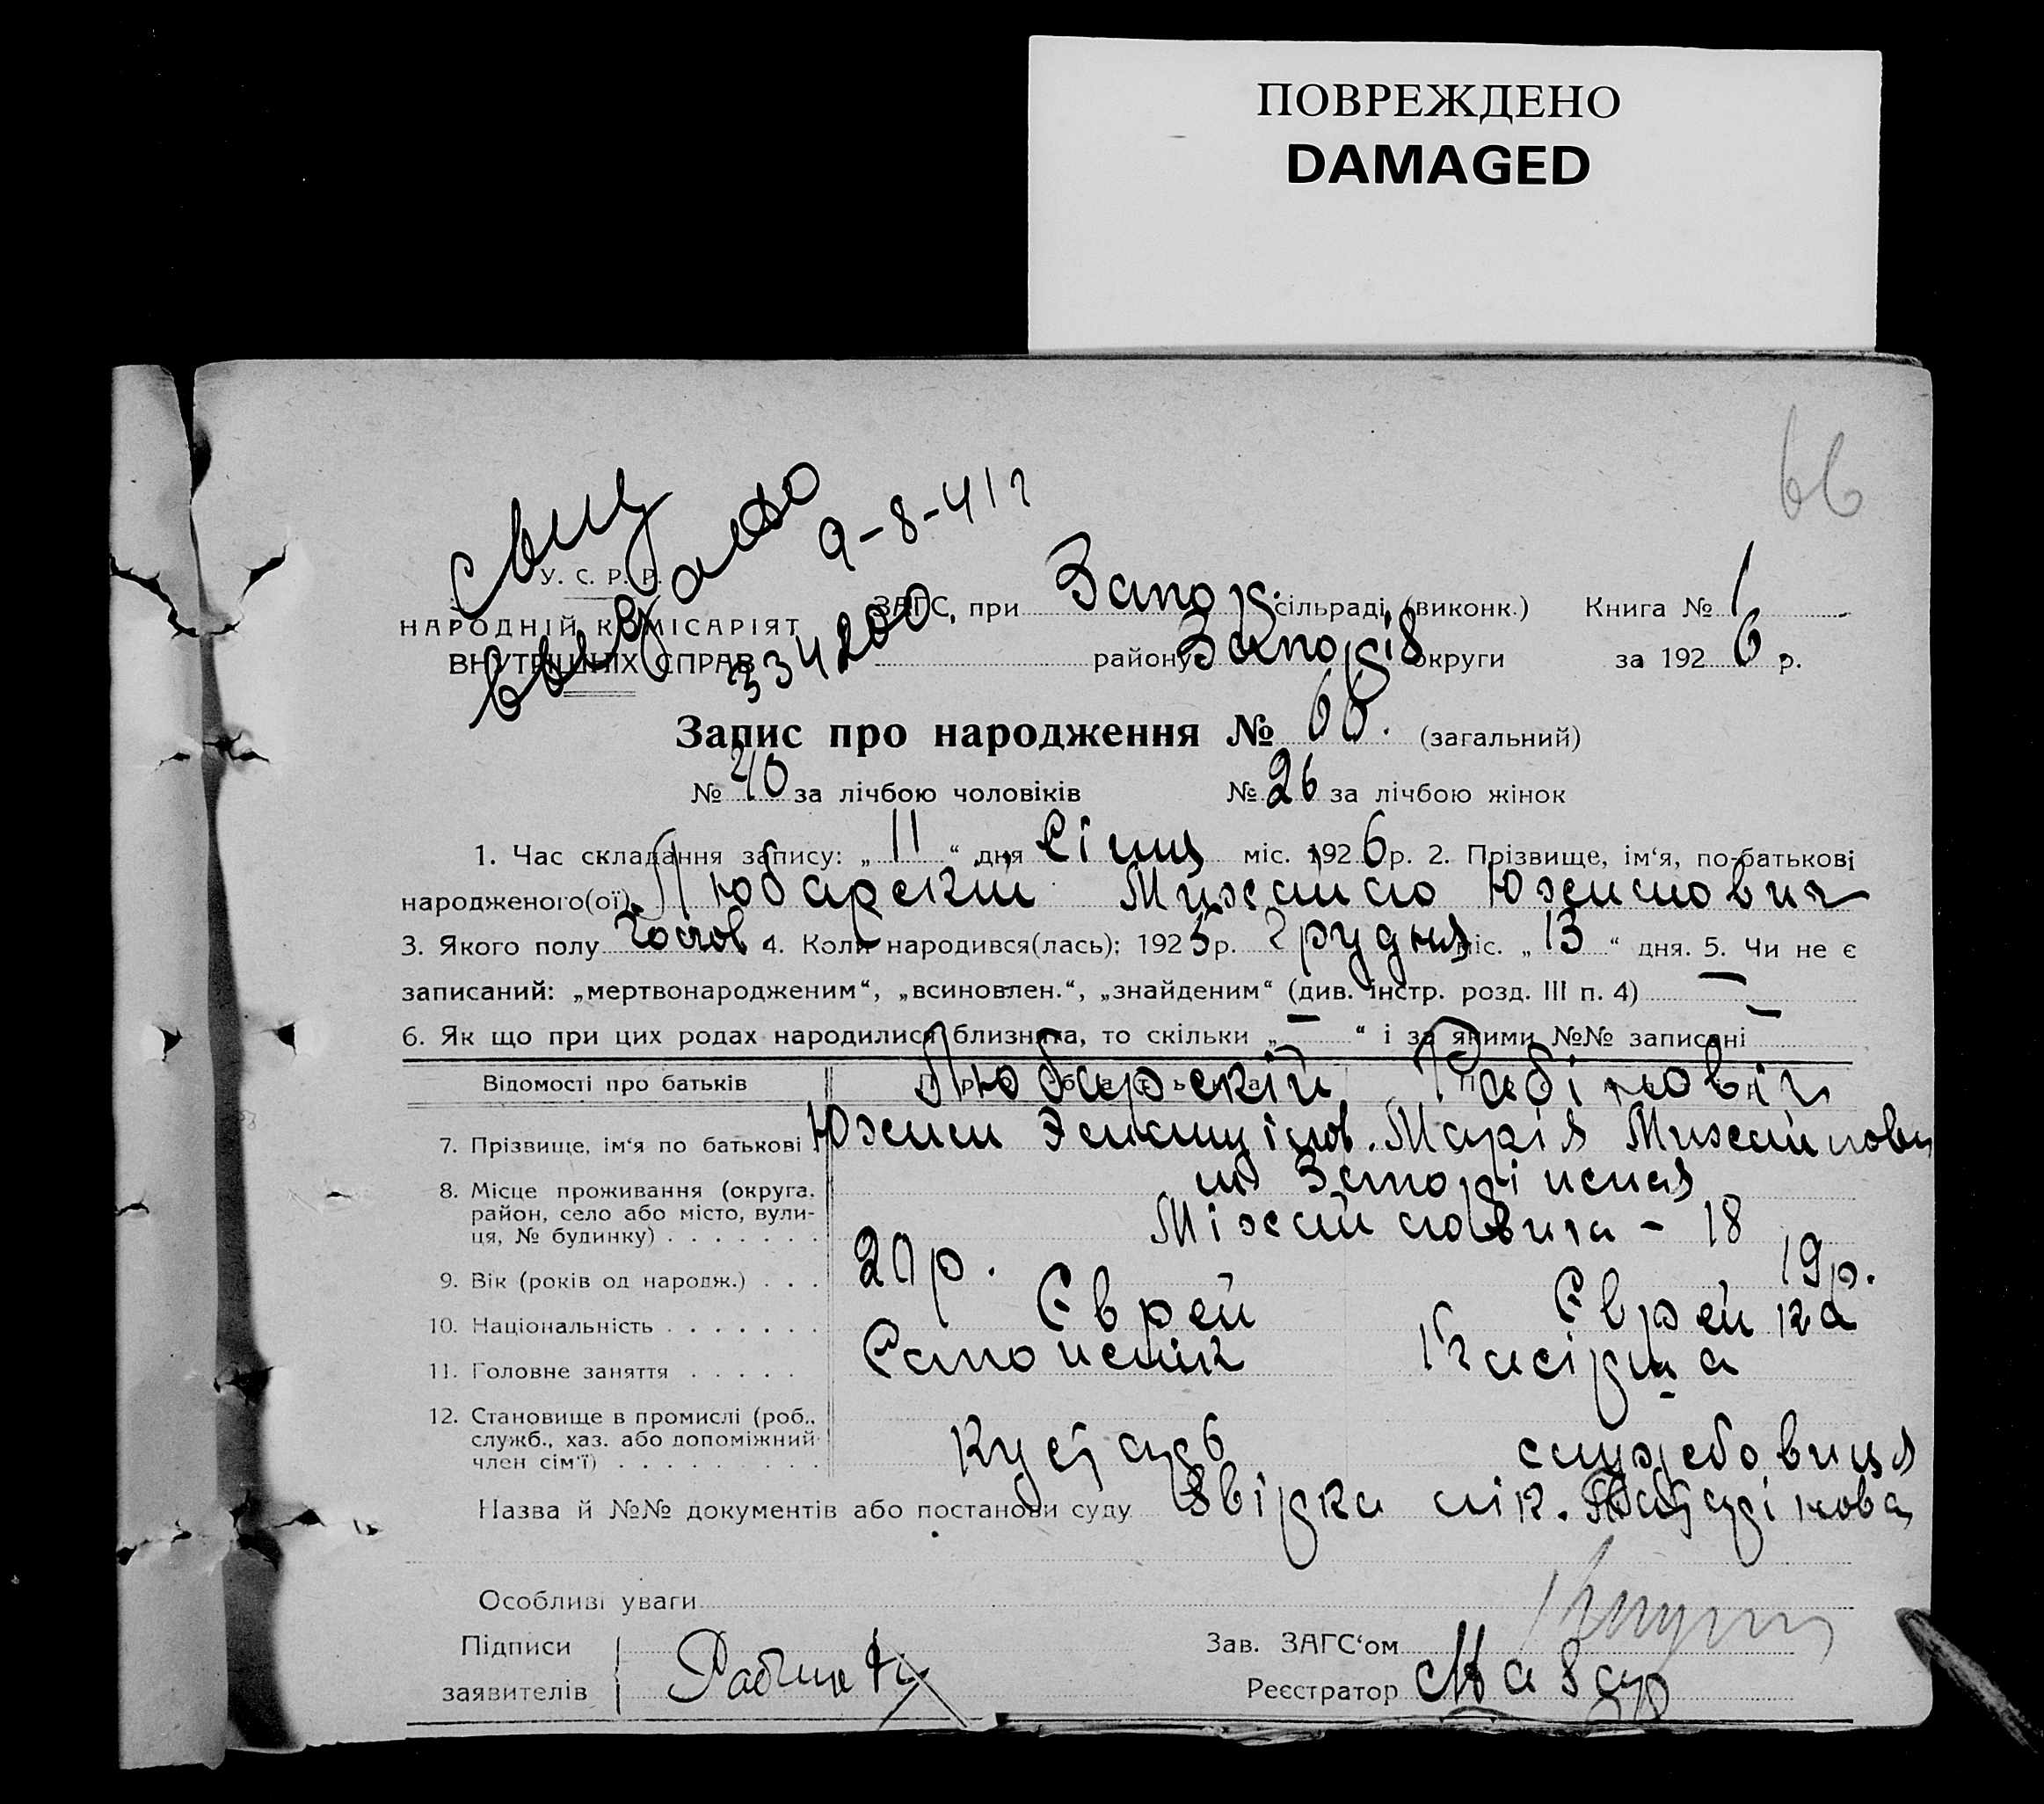 ПОВРЕЖДЕНО
DAMAGED
66
Свид
выдано
9-8-41 г
334200
У. С. Р. Р.
НАРОДНІЙ КОМІСАРІЯТ
ВНУТРІШНІХ СПРАВ
ЗАГС, при Запор. сільраді (виконк.) Книга № 1
району Запоріз округи за 1926 р.
Запис про народження № 66. (загальний)
№ 40 за лічбою чоловіків № 26 за лічбою жінок
1. Час складання запису: „ 11 “ дня Січня міс. 1926 р. 2. Прізвище, ім‘я, по-батькові
народженого(ої) Любарский Михайло Юхимович
3. Якого полу Чолов. 4. Коли народився(лась): 1925 р. Грудня міс. „ 13 “ дня. 5. Чи не є
записаний: „мертвонародженим“, „всиновлен.“, „знайденим“ (див. інстр. розд. III п. 4) —
6. Як що при цих родах народилися близнята, то скільки „ — “ і за якими №№ записані —
Відомості про батьків Любарскій Рабіновіч
7. Прізвище, ім‘я по батькові Юхим Марія Михайловн
8. Місце проживання (округа, м Запоріжжя
район, село або місто, вули-
ця, № будинку) . . . . . . . Міхайловича - 18
9. Вік (років од народж.) . . . 20 р. 19 р.
10. Національність . . . . . . . Єврей Єврейка
11. Головне заняття . . . . . Сапожнік Касірша
12. Становище в промислі (роб.,
служб., хаз. або допоміжний
член сім‘ї) . . . . . . . . . кустарь службовиця
Назва й №№ документів або постанови суду Звірка лік.
Особливі уваги
Підписи
заявителів
Зав. ЗАГС‘ом
Реєстратор Назар